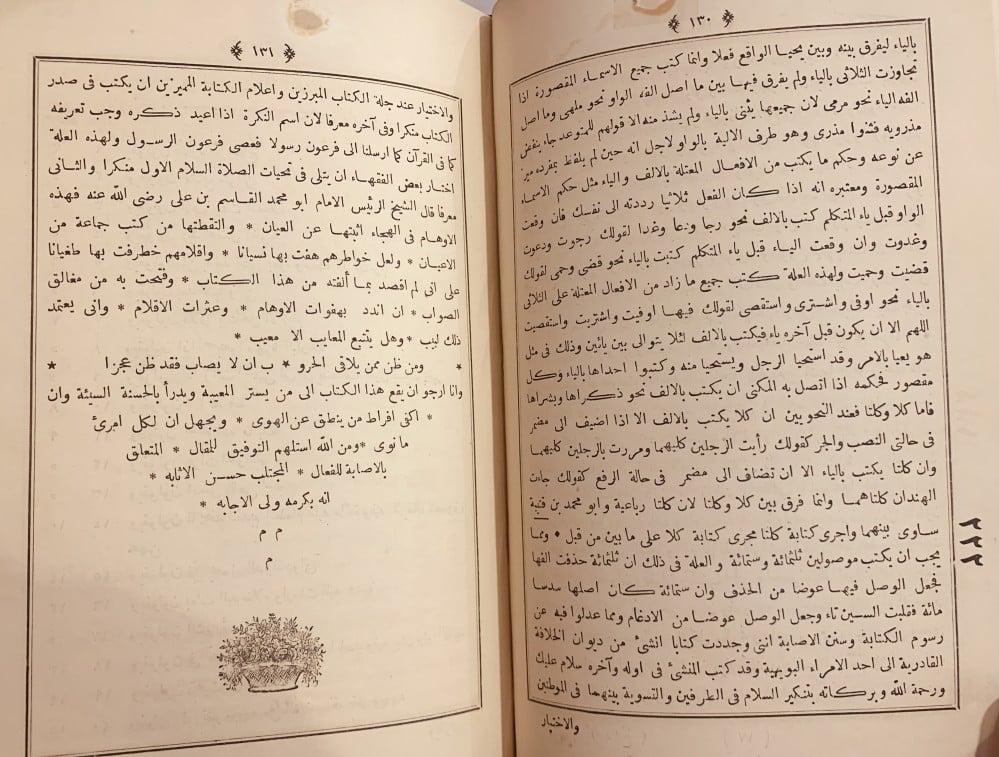 ١٣٠
بالياء ليفرق بينه وبين يحيا الواقع فعلا وانما كتب جميع الاسماء المقصورة اذا
تجاوزت الثلاثى بالياء ولم يفرق فيها بين ما اصل الفه الواو نحو ملهى وما اصل
الفه الياء نحو مرمى لان جميعها يثنى بالياء ولم يشذ منه الا قولهم للمتوعد جاء ينفض
مذرويه فثنوا مذرى وهو طرف الالية بالواو لاجل انه حين لم يلفظ بمفرده ميز
عن نوعه وحكم ما يكتب من الافعال المعتلة بالالف والياء مثل حكم الاسماء
المقصورة ومعتبره انه اذا كان الفعل ثلاثيا رددته الى نفسك فان وقعت
الواو قبل ياء المتكلم كتب بالالف نحو رجا ودعا وغدا لقولك رجوت ودعوت
وغدوت وان وقعت الياء قبل ياء المتكلم كتبت بالياء نحو قضى وحمى لقولك
قضيت وحميت ولهذه العلة كتب جميع ما زاد من الافعال المعتلة على الثلاثى
بالياء نحو اوفى واشترى واستقصى لقولك فيها اوفيت واشتريت واستقصيت
اللهم الا ان يكون قبل آخره ياء فيكتب بالالف لئلا يتوالى بين يائين وذلك فى مثل
هو يعيا بالامر وقد استحيا الرجل ويستحيا منه وكتبوا احداها بالياء وكل
مقصور فحكمه اذا اتصل به المكنى ان يكتب بالالف نحو ذكراها وبشراها
فاما كلا وكلتا فعند النحويين ان كلا يكتب بالالف الا اذا اضيف الى مضمر
فى حالتى النصب والجر كقولك رأيت الرجلين كليهما ومررت بالرجلين كليهما
وان كلتا يكتب بالياء الا ان تضاف الى مضمر فى حالة الرفع كقولك جاءت
الهندان كلتاهما وانما فرق بين كلا وكلتا لان كلتا رباعية وابو محمد بن قتيبة
ساوى بينهما واجرى كتابة كلتا مجرى كتابة كلا على ما بين من قبل * ومما
يجب ان يكتب موصولين ثلثمائة وستمائة و العلة فى ذلك ان ثلثمائة حذفت الفها
فجعل الوصل فيها عوضا من الحذف وان ستمائة كان اصلها سدسا
مائة فقلبت السين تاء وجعل الوصل عوضا من الادغام ومما عدلوا فيه عن
رسوم الكتابة وسنن الاصابة اننى وجددت كتابا انشئ من ديوان الخلافة
القادرية الى احد الامراء البويهية وقد كتب المنشئ فى اوله وآخره سلام عليك
ورحمة الله وبركاته بتنكير السلام فى الطرفين والتسوية بينهما فى الموطنين
والاختيار
٢
٢ ٢
٢ ٢
١٣١
والاختيار عند جلة الكتاب المبرزين واعلام الكتابة المميزين ان يكتب فى صدر
الكتاب منكرا وفى آخره معرفا لان اسم النكرة اذا اعيد ذكره وجب تعريفه
كما فى القرآن كما ارسلنا الى فرعون رسولا فعصى فرعون الرسول ولهذه العلة
اختار بعض الفقهاء ان يتلى فى تحيات الصلاة السلام الاول منكرا والثانى
معرفا قال الشيخ الرئيس الامام ابو محمد القاسم بن على رضى الله عنه فهذه
الاوهام فى الهجاء اثبتها عن العيان * والتقطتها من كتب جماعة من
الاعيان * ولعل خواطرهم هفت بها نسيانا * واقلامهم خطرفت بها طغيانا
على انى لم اقصد بما ألفته من هذا الكتاب * وفتحت به من مغالق
الصواب * ان اندد بهفوات الاوهام * وعثرات الاقلام * وانى يعتمد
ذلك لبيب * وهل يتتبع المعايب الا معيب *
* ومن ظن ممن يلاقى الحرو * ب ان لا يصاب فقد ظن عجزا *
وانا ارجو ان يقع هذا الكتاب الى من يستر المعيبة ويدرأ بالحسنة السيئة وان
* اكفى افراط من ينطق عن الهوى * ويجهل ان لكل امرئ
ما نوى * ومن الله استلهم التوفيق للمقال * المتعلق
بالاصابة للفعال * المجتلب حسن الاثابه *
انه بكرمه ولى الاجابه *
م م
م